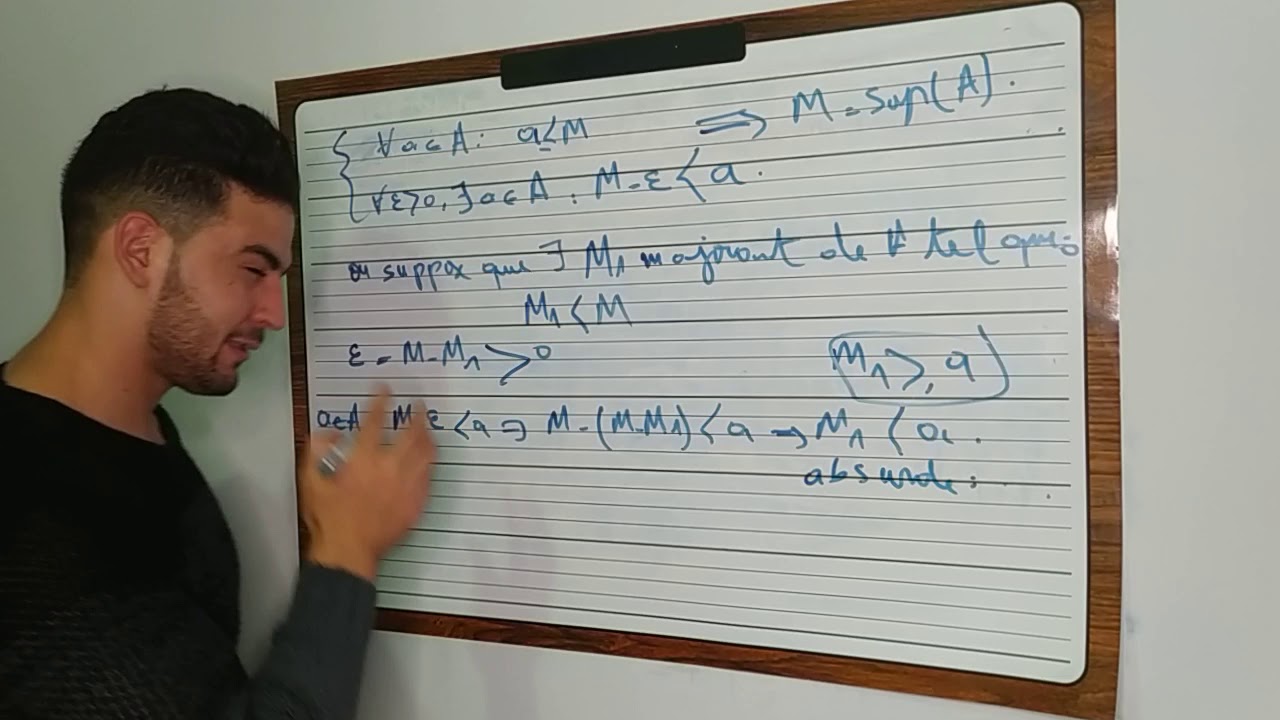 ∀ a ∈ A : a ≤ M ⟹ M = Sup(A).
∀ε>0, ∃ a ∈ A : M-ε < a.
on suppox que ∃ M₁ majorant de A tel que:
M₁ < M
ε = M-M₁ > 0
M₁ ≥ a
a∈A M-ε < a ⇒ M-(M-M₁) < a ⇒ M₁ < a.
absurde.